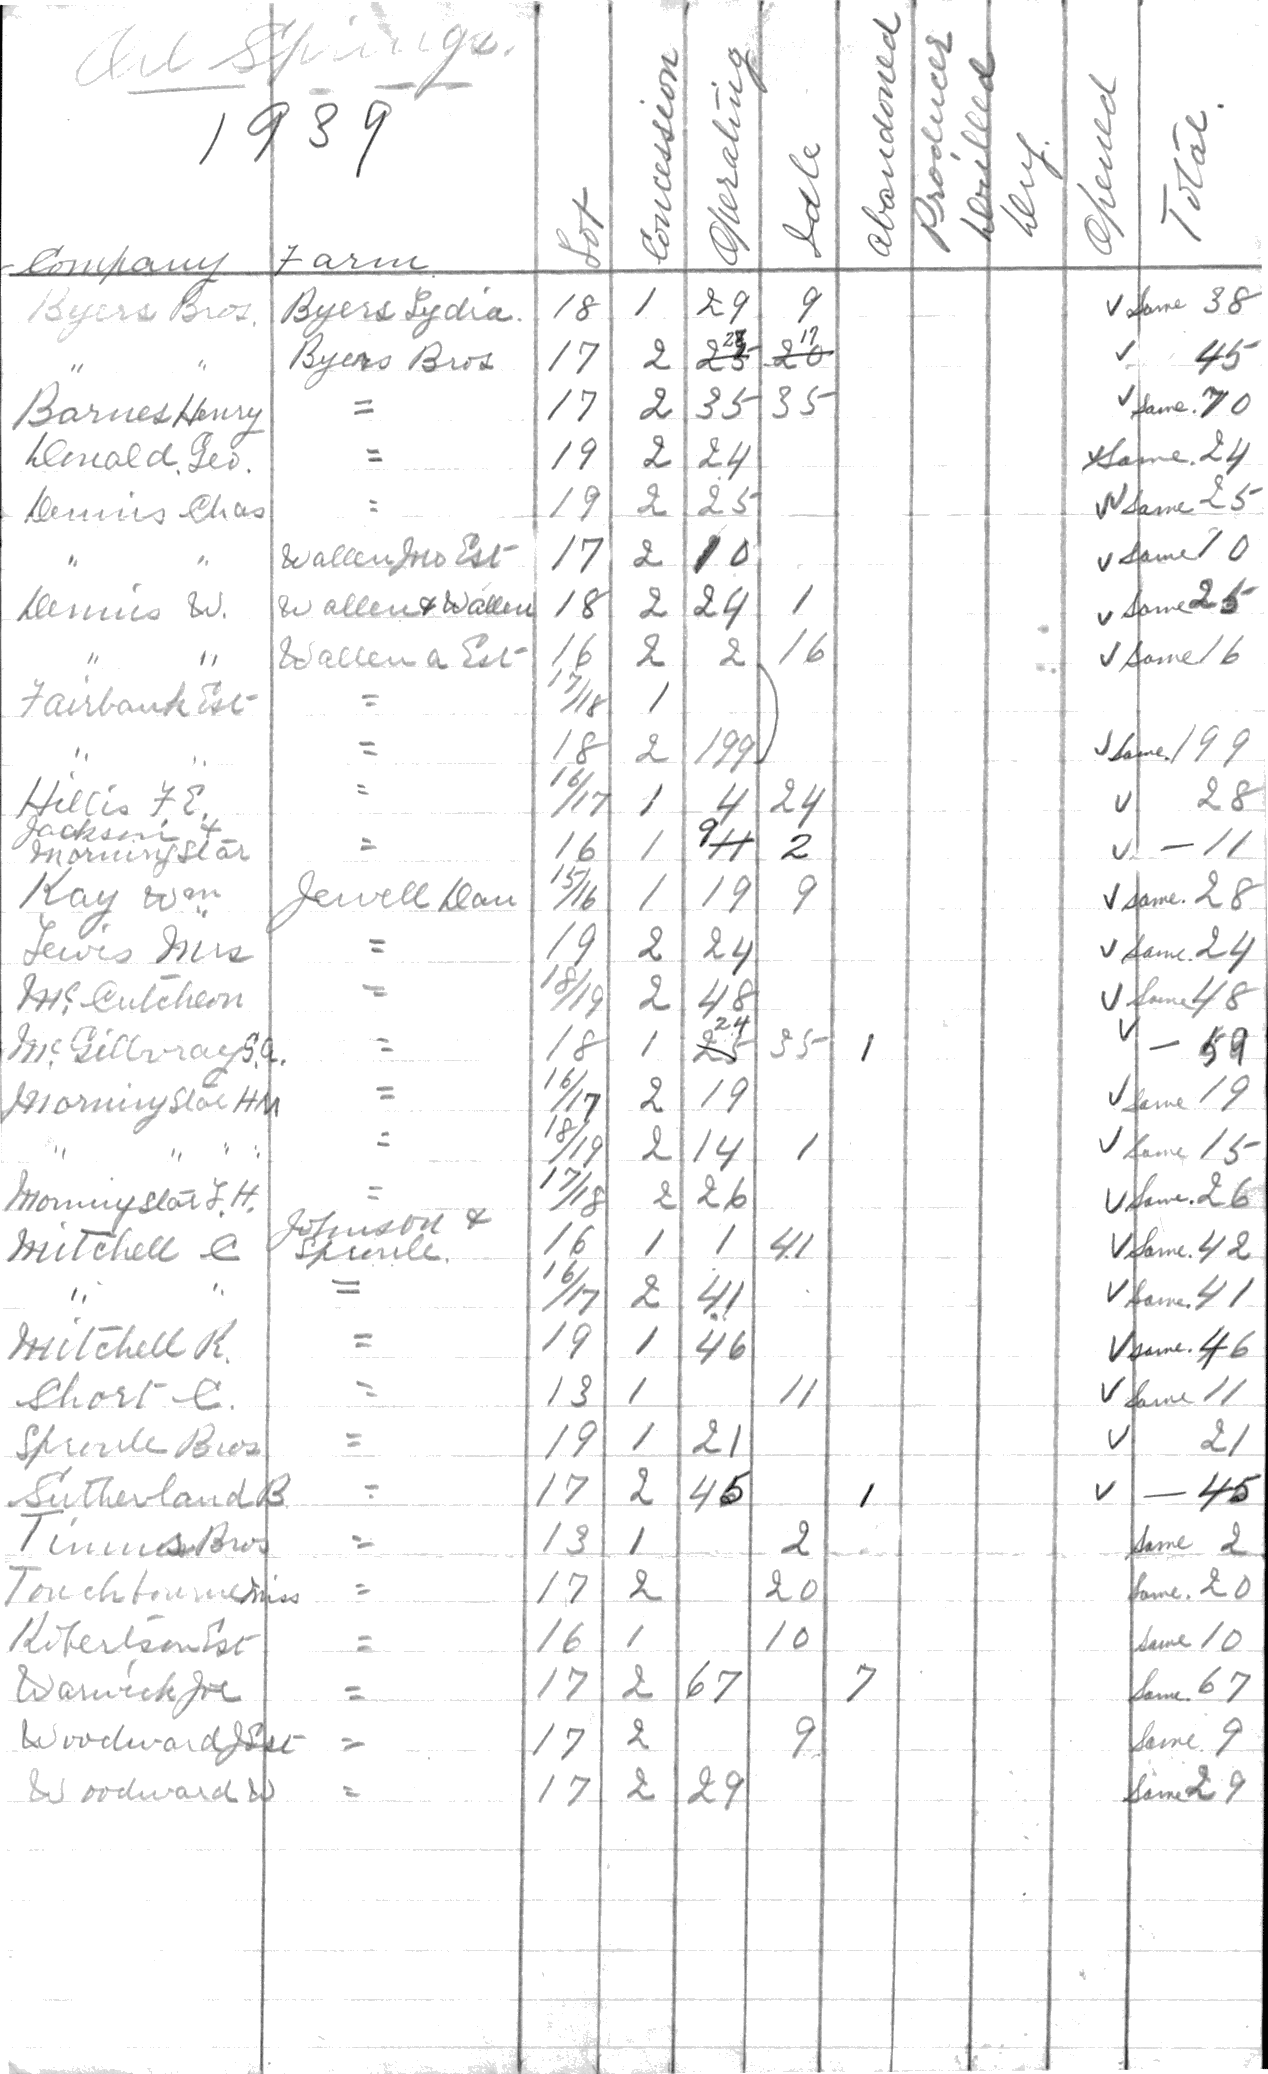 Oil Springs.
1939
Company Farm Lot Concession Operating Idle Abandoned Producer Drilled Dry. Opened Total.
Byers Bros. Byers Lydia. 18 1 29 9 ✓ Same 38
" " Byers Bros 17 2 25 28 20 17 ✓ 45
Barnes Henry = 17 2 35 35 ✓ Same. 70
Donald. Geo. = 19 2 24 ✓ Same. 24
Dennis Chas = 19 2 25 ✓ Same 25
" " Wallen Jno Est 17 2 10 ✓ Same 10
Dennis W. Wallen & Wallen 18 2 24 1 ✓ Same 25
" " Wallen A Est 16 2 2 16 ✓ Same 16
Fairbank Est = 17/18 1
" " = 18 2 199 ✓ Same. 199
Hillis F E. = 16/17 1 4 24 ✓ 28
Jackson &
Morningstar = 16 1 9 11 2 ✓ — 11
Kay Wm Jewell Dan 15/16 1 19 9 ✓ Same. 28
Lewis Mrs = 19 2 24 ✓ Same. 24
Mc Cutcheon = 18/19 2 48 ✓ Same 48
Mc Gillvray S.A. = 18 1 25 24 35 1 ✓ — 59
Morningstar HM = 16/17 2 19 ✓ Same 19
" " " " = 18/19 2 14 1 ✓ Same 15
Morningstar F.H. = 17/18 2 26 ✓ Same. 26
Mitchell C Johnson &
Sproule. 16 1 1 41 ✓ Same. 42
" " = 16/17 2 41 ✓ Same. 41
Mitchell R. = 19 1 46 ✓ Same. 46
Short C. = 13 1 11 ✓ Same 11
Sproule Bros = 19 1 21 ✓ 21
Sutherland B = 17 2 45 1 ✓ — 45
Timms Bros = 13 1 2 Same 2
Touchbourne Miss = 17 2 20 Same. 20
Robertson Est = 16 1 10 Same 10
Warwick Joe = 17 2 67 7 Same. 67
Woodward J Est = 17 2 9 Same 9
Woodward W = 17 2 29 Same 29